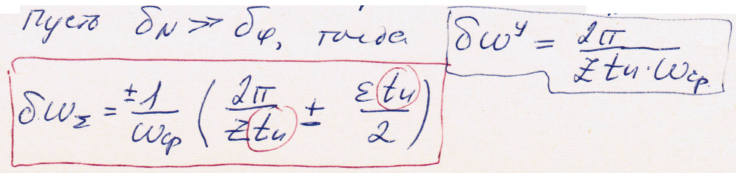 Пусть δ_N >> δ_φ, тогда
δω^y = 2π / (z t_и · ω_ср)
δω_Σ = ±1/ω_ср ( 2π / (z t_и) ± ε t_и / 2 )